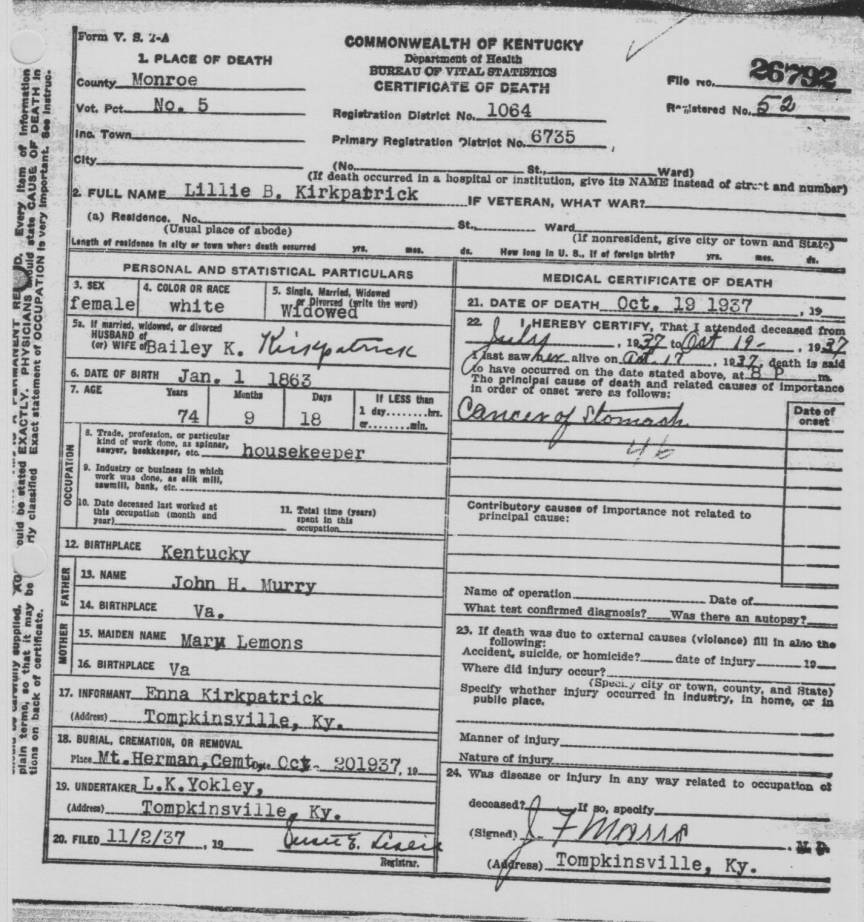 Form V. S. 1-A
COMMONWEALTH OF KENTUCKY
Department of Health
BUREAU OF VITAL STATISTICS
CERTIFICATE OF DEATH
File No. 26792
Registered No. 52
1. PLACE OF DEATH
County Monroe
Vot. Pct. No. 5
Inc. Town
City
Registration District No. 1064
Primary Registration District No. 6735
(No. St., Ward)
(If death occurred in a hospital or institution, give its NAME instead of street and number)
2. FULL NAME Lillie B. Kirkpatrick IF VETERAN, WHAT WAR?
(a) Residence. No. St., Ward
(Usual place of abode) (If nonresident, give city or town and State)
Length of residence in city or town where death occurred yrs. mos. ds. How long in U. S., if of foreign birth? yrs. mos. ds.
PERSONAL AND STATISTICAL PARTICULARS
3. SEX female
4. COLOR OR RACE white
5. Single, Married, Widowed or Divorced (write the word) Widowed
5a. If married, widowed, or divorced
HUSBAND of
(or) WIFE of Bailey K. Kirkpatrick
6. DATE OF BIRTH Jan. 1 1863
7. AGE Years Months Days If LESS than
74 9 18 1 day........hrs.
or........min.
OCCUPATION
8. Trade, profession, or particular
kind of work done, as spinner,
sawyer, bookkeeper, etc. housekeeper
9. Industry or business in which
work was done, as silk mill,
sawmill, bank, etc.
10. Date deceased last worked at
this occupation (month and
year)
11. Total time (years)
spent in this
occupation
12. BIRTHPLACE Kentucky
FATHER
13. NAME John H. Murry
14. BIRTHPLACE Va.
MOTHER
15. MAIDEN NAME Mary Lemons
16. BIRTHPLACE Va
17. INFORMANT Enna Kirkpatrick
(Address) Tompkinsville, Ky.
18. BURIAL, CREMATION, OR REMOVAL
Place Mt.Herman,Cemt Oct 201937, 19
19. UNDERTAKER L.K.Yokley,
(Address) Tompkinsville, Ky.
20. FILED 11/2/37 , 19
Registrar.
MEDICAL CERTIFICATE OF DEATH
21. DATE OF DEATH Oct. 19 1937 , 19
22. I HEREBY CERTIFY, That I attended deceased from
July , 1937 to Oct 19- , 1937
I last saw her alive on Oct 17 , 1937, death is said
to have occurred on the date stated above, at 8 P m.
The principal cause of death and related causes of importance
in order of onset were as follows:
Date of onset
Cancer of Stomach
46
Contributory causes of importance not related to
principal cause:
Name of operation Date of
What test confirmed diagnosis? Was there an autopsy?
23. If death was due to external causes (violence) fill in also the
following:
Accident, suicide, or homicide? date of injury 19
Where did injury occur?
(Specify city or town, county, and State)
Specify whether injury occurred in industry, in home, or in
public place.
Manner of injury
Nature of injury
24. Was disease or injury in any way related to occupation of
deceased? If so, specify
(Signed) J F Marrs M. D.
(Address) Tompkinsville, Ky.